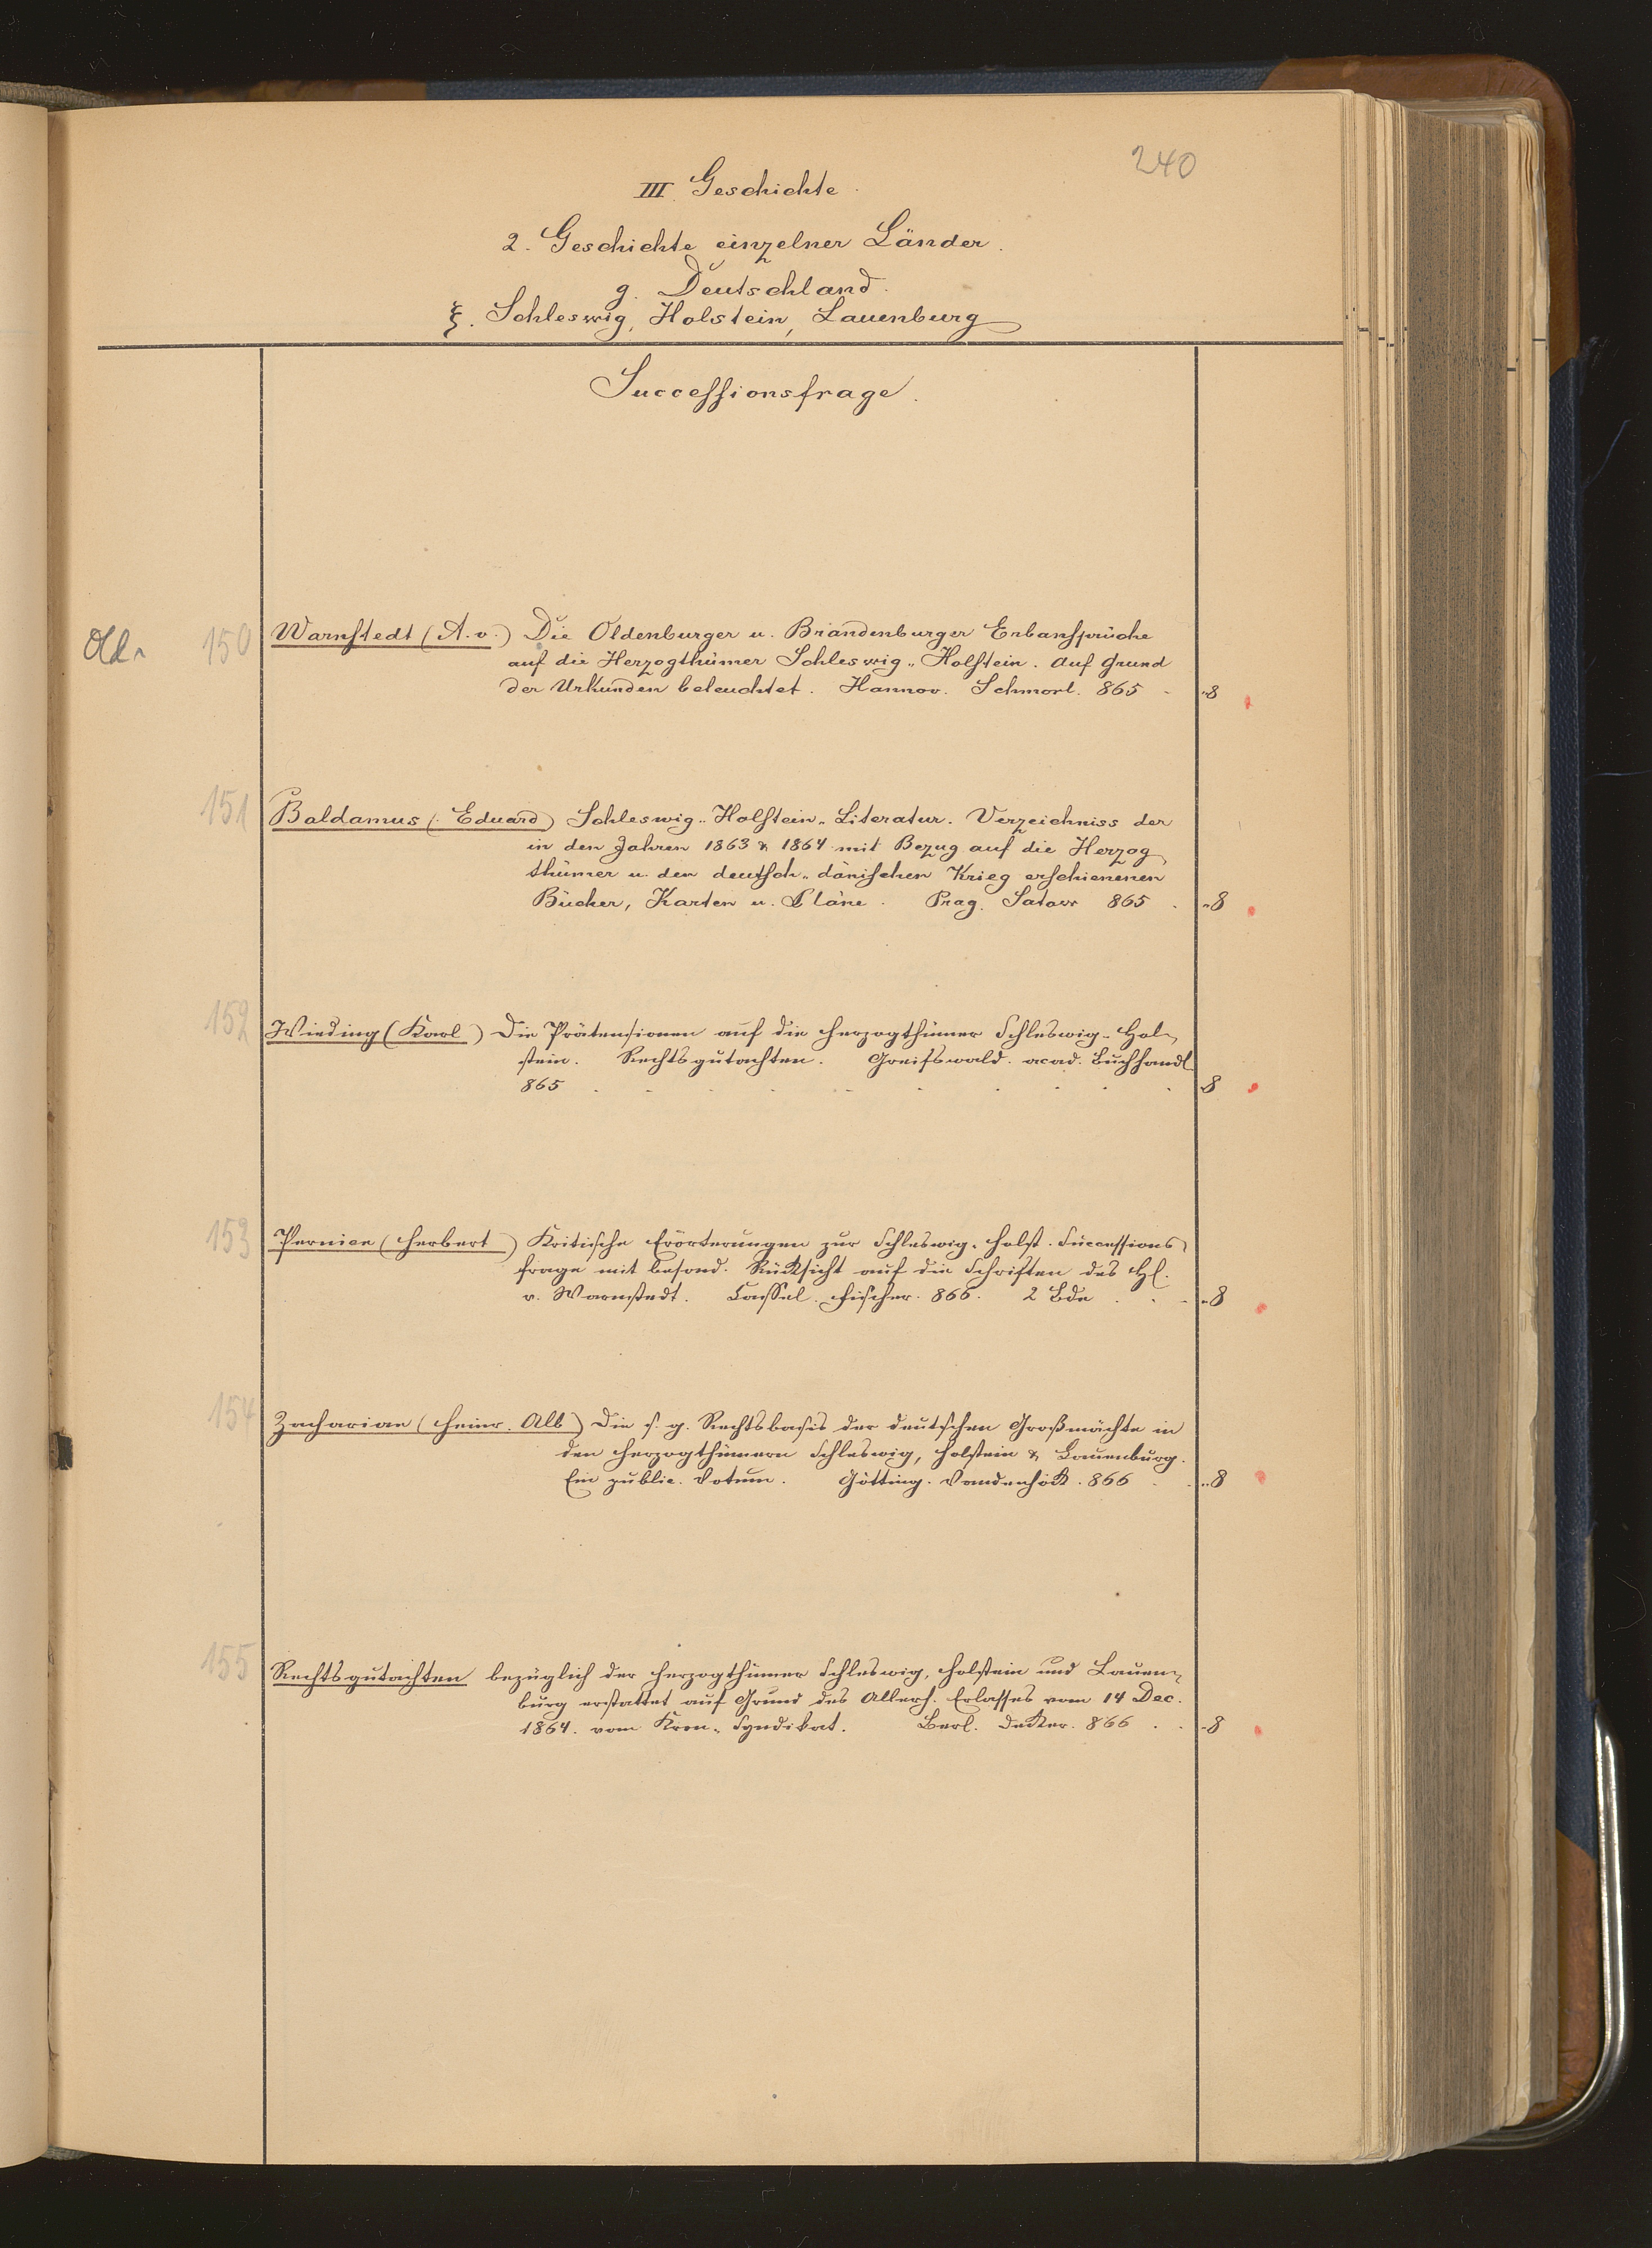 240
III. Geschichte.
2. Geschichte einzelner Länder.
g. Deutschland.
ξ. Schleswig, Holstein, Lauenburg
Successionsfrage.
Old. 150 Warnstedt (A. v.) Die Oldenburger u. Brandenburger Erbansprüche
auf die Herzogthümer Schleswig-Holstein. Auf Grund
der Urkunden beleuchtet. Hannov. Schmorl. 865 . - 8
151 Baldamus (Eduard) Schleswig-Holstein-Literatur. Verzeichniss der
in den Jahren 1863 & 1864 mit Bezug auf die Herzog
thümer u. den deutsch-dänischen Krieg erschienenen
Bücher, Karten u. Pläne. Prag. Satow 865 . - 8
152 Wieding (Karl) Die Prätensionen auf die Herzogthümer Schleswig-Hol-
stein. Rechtsgutachten. Greifswald. acad. Buchhandl
865 . . . . . . . . . . 8
153 Pernice (Herbert) Kritische Erörterungen zur Schleswig-Holst. Successions
frage mit besond. Rücksicht auf die Schriften des H.
v. Warnstedt. Cassel. Fischer. 866. 2 Bde . . - 8
154 Zachariae (Heinr. Alb) Die s. g. Rechtsbasis der deutschen Großmächte in
den Herzogthümern Schleswig, Holstein & Lauenburg.
Ein public. Votum. Götting. Vandenhöck. 866 . . - 8
155 Rechtsgutachten bezüglich der Herzogthümer Schleswig, Holstein und Lauen-
burg erstattet auf Grund des Allerh. Erlasses vom 14 Dec.
1864. vom Kron-Syndikat. Berl. Decker. 866 . . - 8